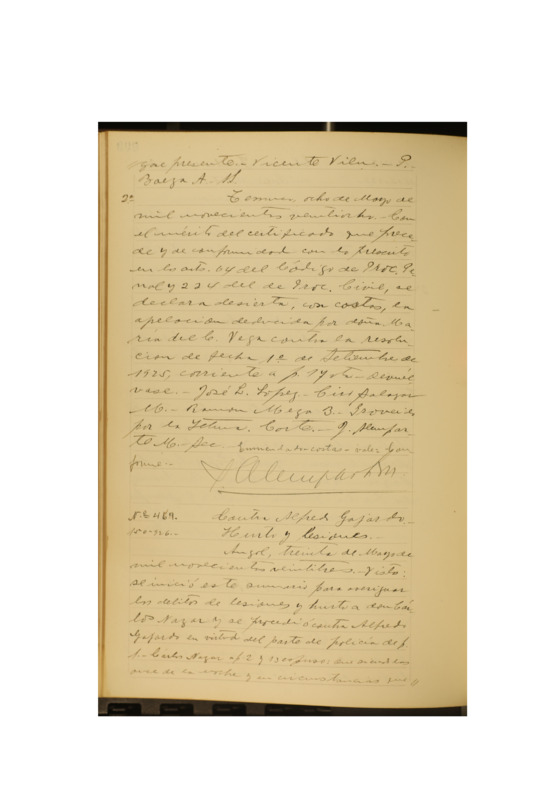 que presente.- Vicente Vilu.- P.
Baeza A. S.
2a Temuco, ocho de Mayo de
mil novecientos veintiocho. Con
el mérito del certificado que prece-
de y de conformidad con lo prescrito
en los arts. 64 del Código de Proc. Pe-
nal y 224 del de Proc. Civil, se
declara desierta, con costas, la
apelacion deducida por doña Ma-
ría del C. Vega contra la resolu-
cion de fecha 12 de Setiembre de
1925, corriente a f. 17 vta.- Devuél-
vase.- José D. Lopez.- Ciro Salazar
M.- Ramon Meza B.- Proveido
por la Iltma. Corte.- J. Alempar-
te M. Sec. Enmendado-costas-vale-Con-
forme.-
N.E 469. Contra Alfredo Gajardo-
Hurto y lesiones.-
Angol, treinta de Mayo de
mil novecientos veintitres.- Visto:
se inició este sumario para averiguar
los delitos de lesiones y hurto a don Cár-
los Nazar y se procedió contra Alfredo
Gajardo en virtud del parte de policía de f.
1.- Carlos Nazar a f. 2 y 13 expuso: que a las
once de la noche y en circunstancias que